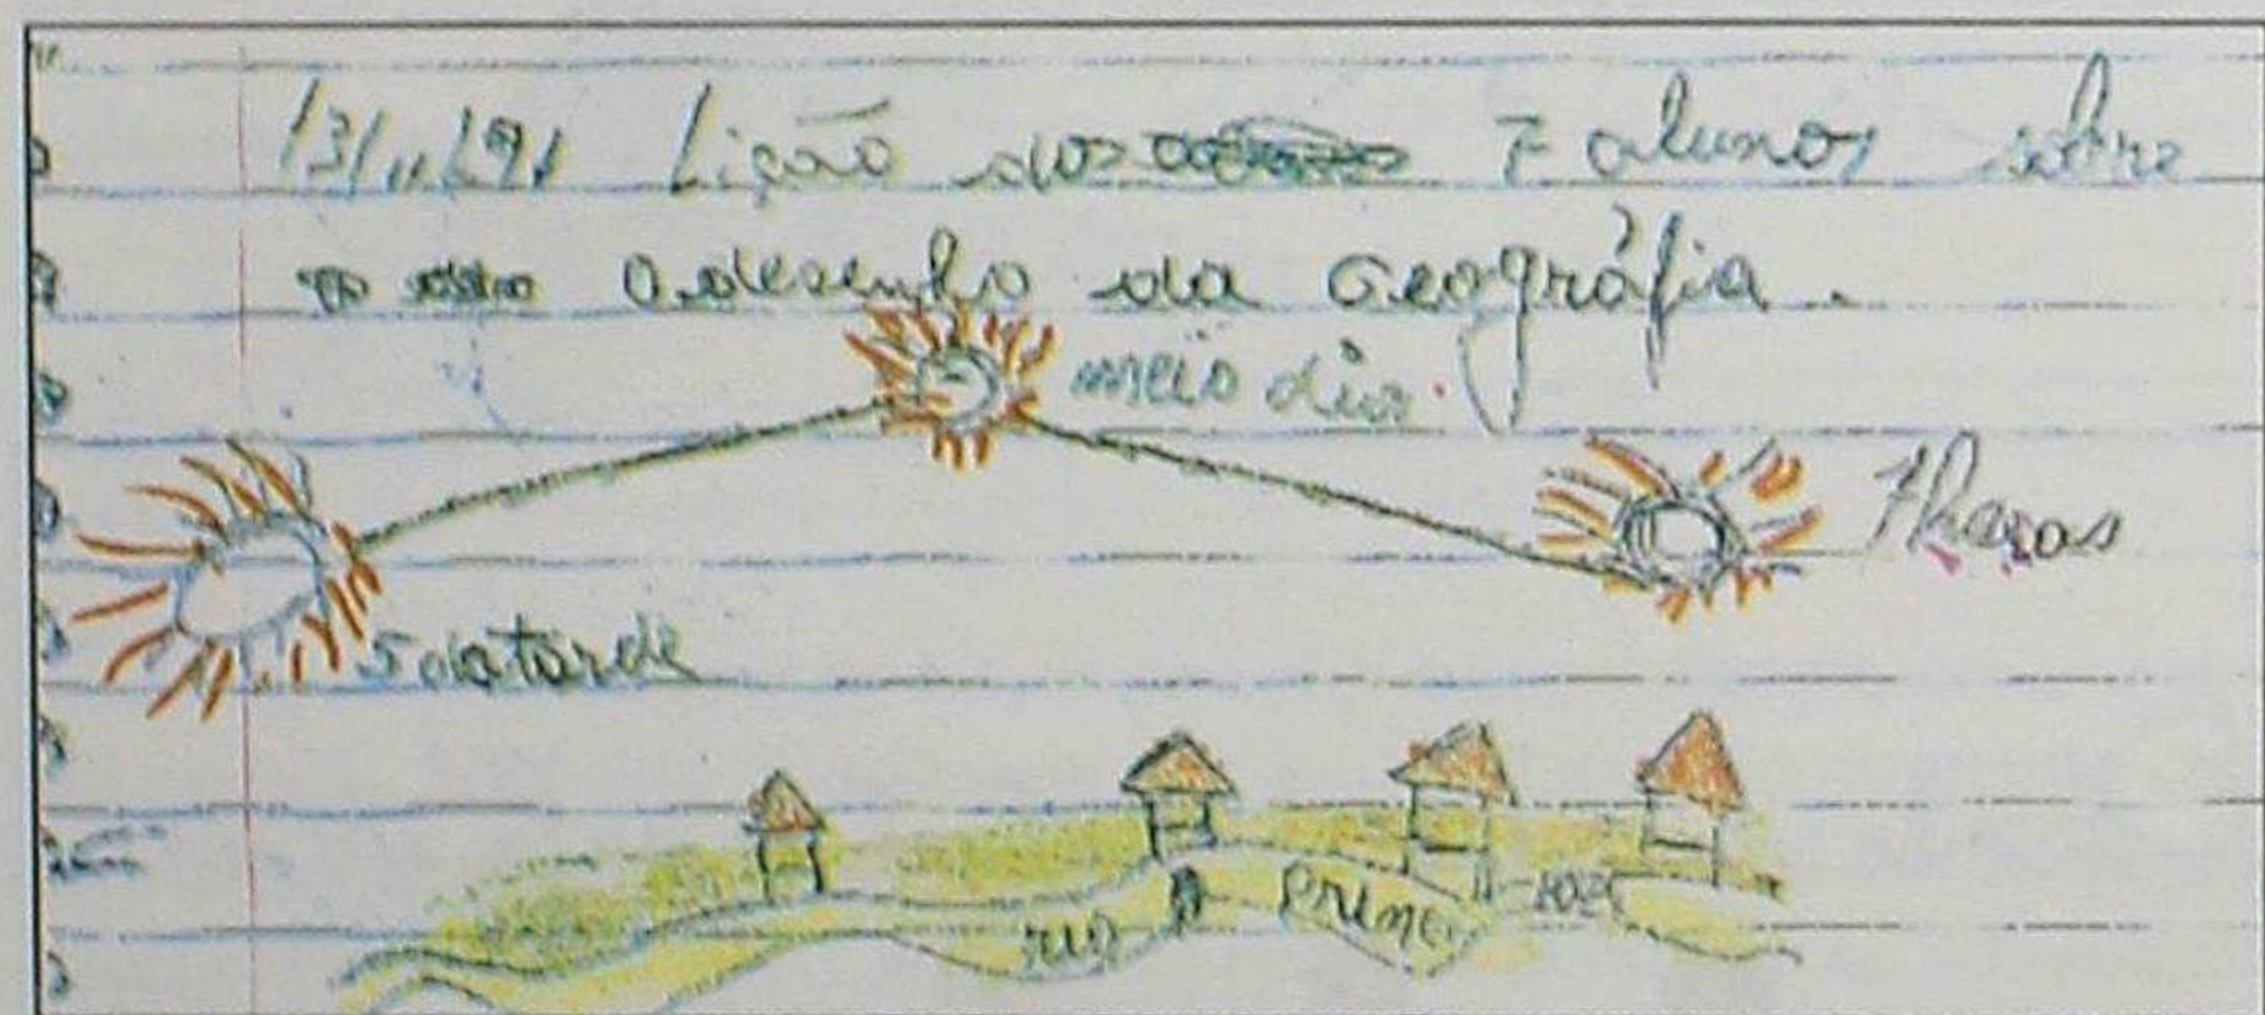 13/11/91 Lição dos 7 alunos sobre
o desenho da Geográfia.
meio dia.
7 horas
5 da tarde
rio